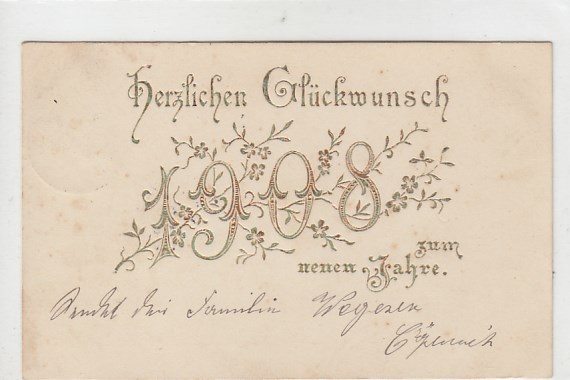 Herzlichen Glückwunsch
1908
zum
neuen Jahre.
Sendet der Familie Wegener